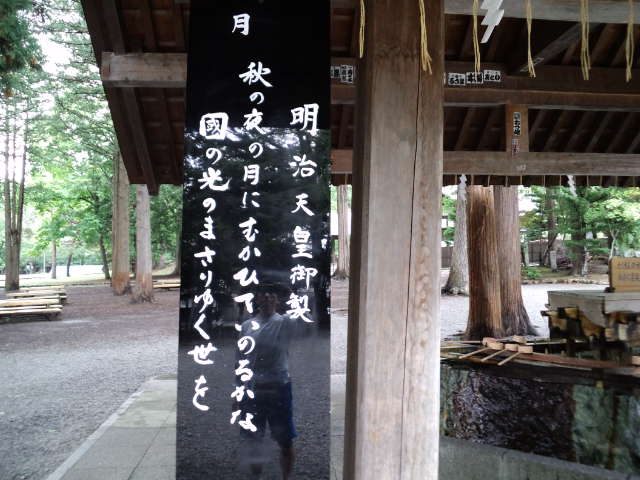 月
明治天皇御製
秋の夜の月にむかひていのるかな
國の光のまさりゆく世を